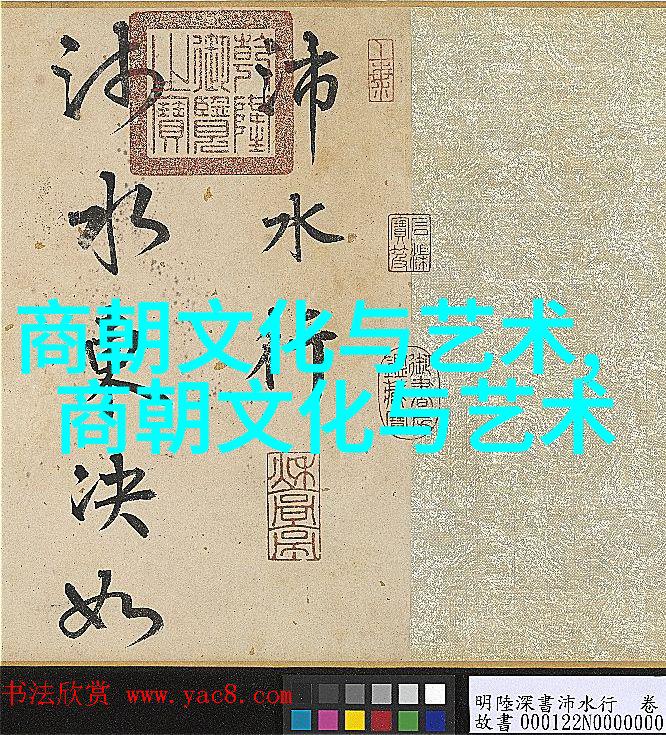 沛水行
沛水東決如
乾隆御覽之寶
商朝文化与艺术,
商朝文化与艺术
书法欣赏 www.yac8.com
明陸深書沛水行 卷
故書000122N0000000